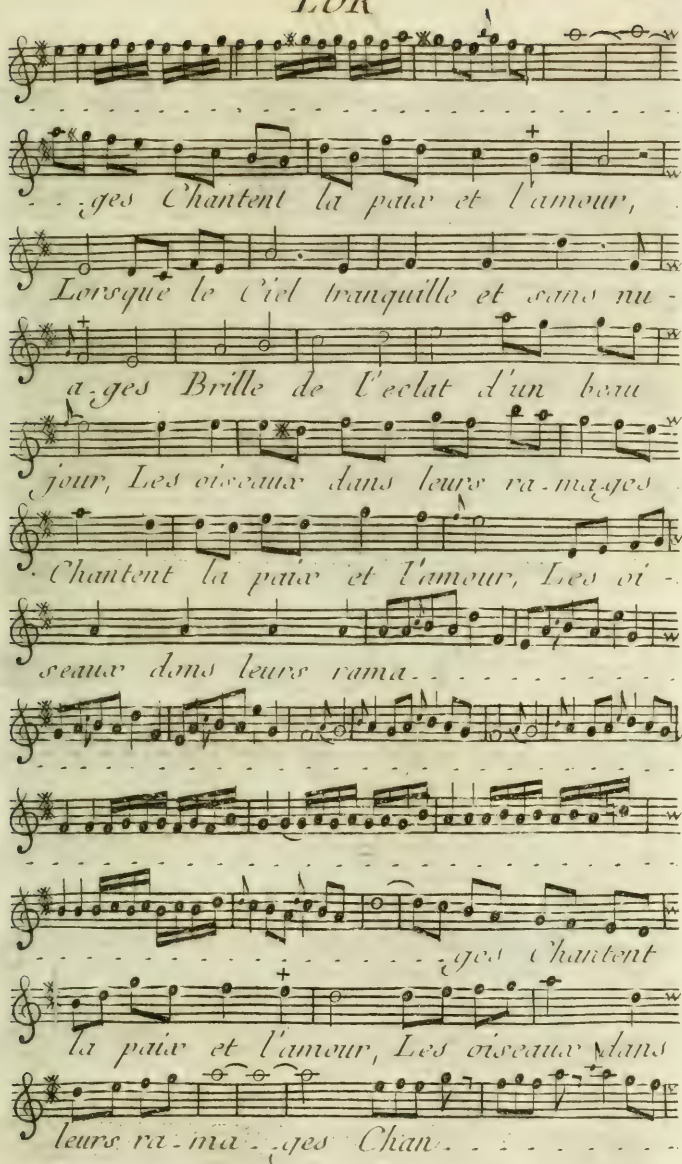 LOR
ges Chantent la paix et l'amour,
Lorsque le Ciel tranquille et sans nu-
a-ges Brille de l'eclat d'un beau
jour, Les oiseaux dans leurs ra-mages
Chantent la paix et l'amour, Les oi-
seaux dans leurs rama
ges Chantent
la paix et l'amour, Les oiseaux dans
leurs ra-ma-ges Chan